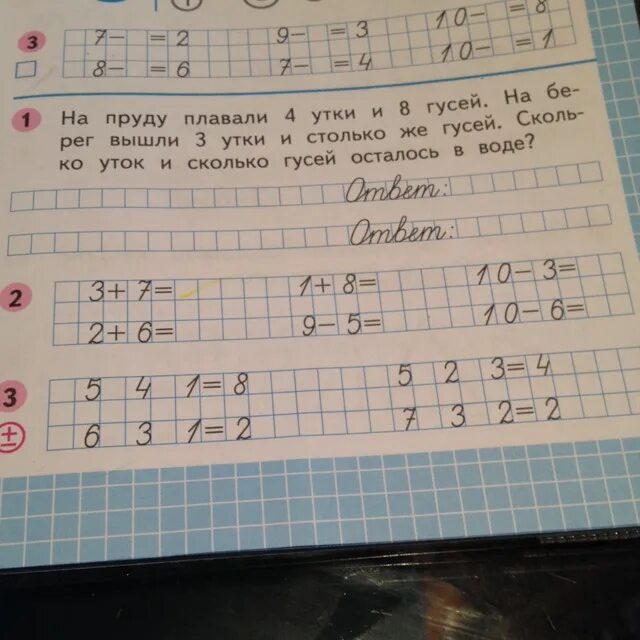 3 7– =2 9– =3 10– =8
8– =6 7– =4 10– =1
1 На пруду плавали 4 утки и 8 гусей. На бе-
рег вышли 3 утки и столько же гусей. Сколь-
ко уток и сколько гусей осталось в воде?
Ответ:
Ответ:
2 3+7= 1+8= 10–3=
2+6= 9–5= 10–6=
3 5 4 1=8 5 2 3=4
± 6 3 1=2 7 3 2=2